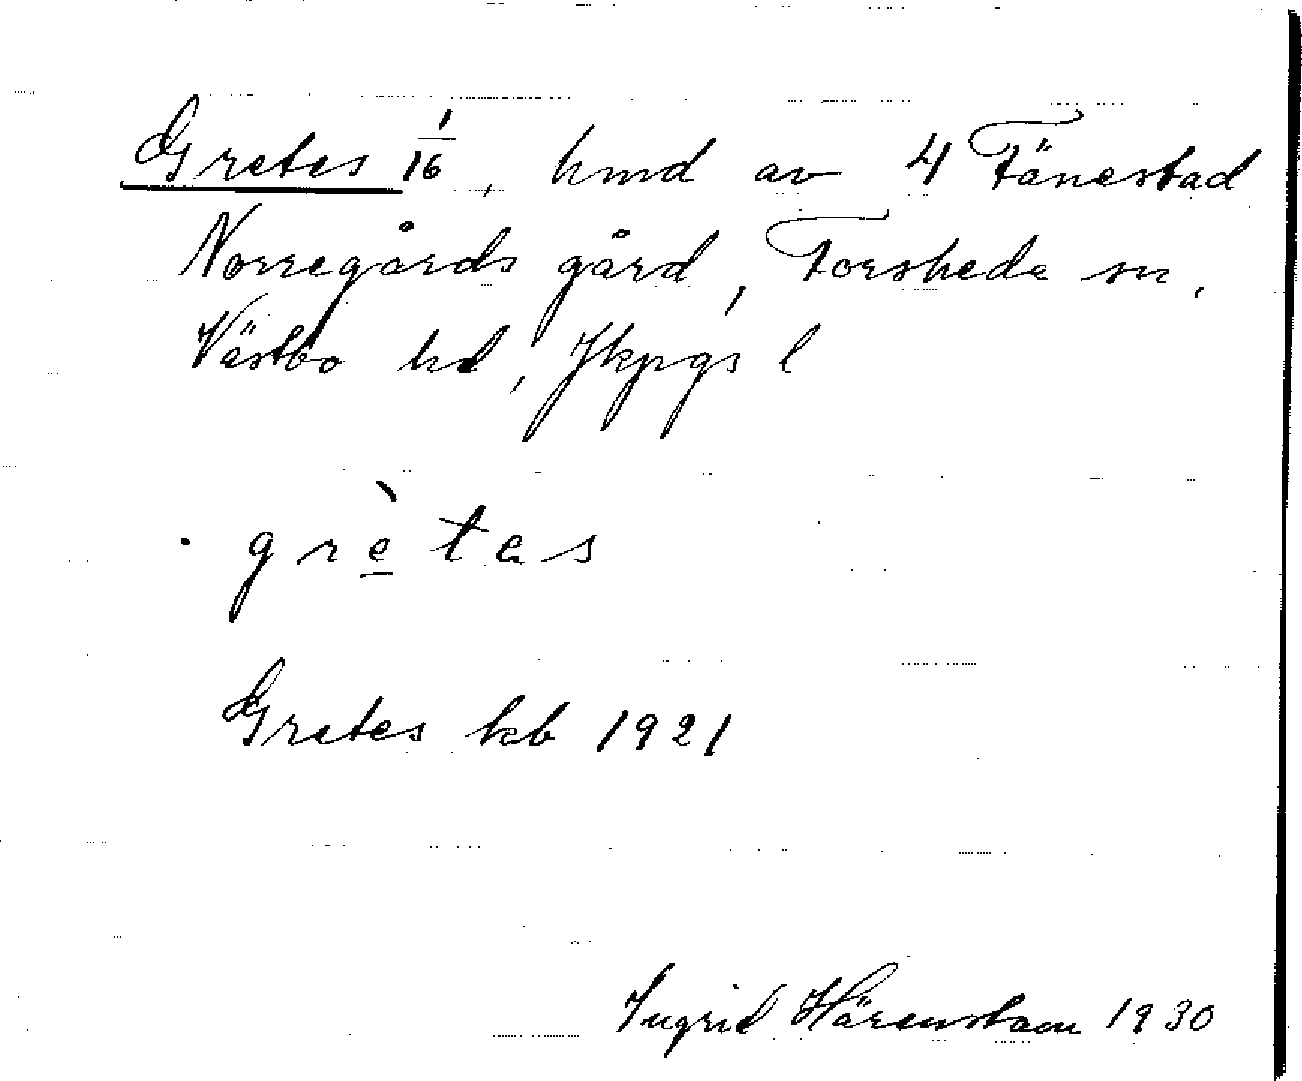 Gretes 1/16, hmd av 4 Fänestad
Norregårds gård, Forsheda sn,
Västbo hd, Jkpgs l
. grètas
Gretes kb 1921
Ingrid Härenstam 1930